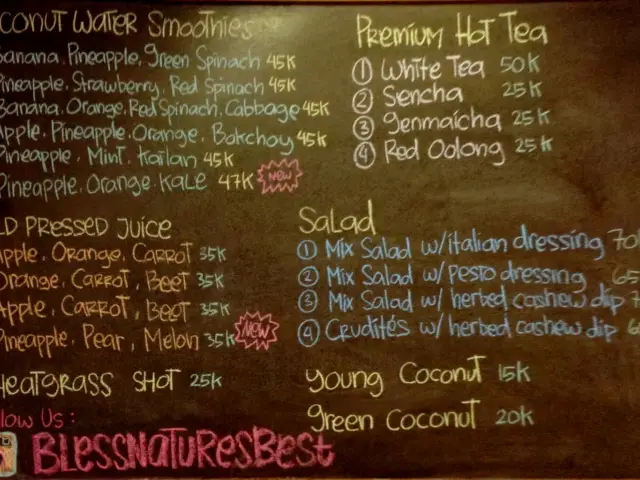 CONUT WATER SMOOTHIES
Banana, Pineapple, Green Spinach 45K
Pineapple, Strawberry, Red Spinach 45K
Banana, Orange, Red Spinach, Cabbage 45K
Apple, Pineapple, Orange, Bokchoy 45K
Pineapple, Mint, Kailan 45K
Pineapple, Orange, Kale 47K NEW
LD PRESSED JUICE
Apple, Orange, Carrot 35K
Orange, Carrot, Beet 35K
Apple, Carrot, Beet 35K
Pineapple, Pear, Melon 35K NEW
HEATGRASS SHOT 25K
llow Us:
BLESSNATURESBEST
PREMIUM HOT TEA
1 White Tea 50K
2 Sencha 25K
3 Genmaicha 25K
4 Red Oolong 25K
SALAD
1 Mix Salad w/italian dressing 70
2 Mix Salad w/pesto dressing 65
3 Mix Salad w/ herbed cashew dip
4 Crudités w/ herbed cashew dip 6
Young Coconut 15K
Green Coconut 20K